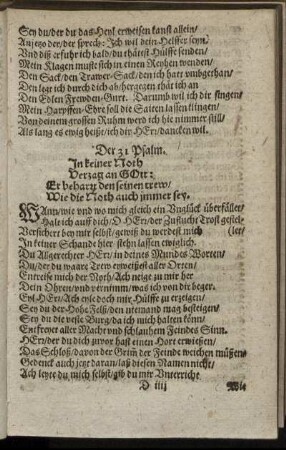 Sey du/ der du das Heyl erweisen kanst allein/
An jezo der/ der sprech: Ich wil dein Helffer seyn.
Und diß erfuhr ich bald/ du thätest Hülffe senden/
Mein Klagen muste sich in einen Reyhen wenden/
Den Sack/ den Trawer-Sack/ den ich hatt umbgethan/
Den legt ich durch dich ab/ hergegen thät ich an
Den Edlen Frewden-Gurt. Darumb wil ich dir singen/
Mein Harpffen-Ehre soll dir Saiten lassen klingen/
Von deinem grossen Ruhm werd ich hie nimmer still/
Als lang es ewig heiße/ ich dir HErr/ dancken wil.
Der 31 Psalm.
In keiner Noth
Verzag an GOtt:
Er beharrt den seinen trew/
Wie die Noth auch immer sey.
WAnn/ wie und wo mich gleich ein Unglück überfället/
Halt ich auff dich/ O HErr/ der Zuflucht Trost gestel-
(let/
Versichert bey mir selbst/ gewiß du werdest mich
In keiner Schande hier stehn lassen ewiglich.
Du Allgerechter HErr/ in deines Mundes Worten/
Du/ der du waare Trew erweisest aller Orten/
Entreisse mich der Noth/ Ach neige zu mir her
Dein Ohren/ und vernimm/ was ich von dir beger.
Eyl HErr/ Ach eyle doch mir Hülffe zu erzeigen/
Sey du der Hohe Felß/ den niemand mag besteigen/
Sey du die veste Burg/ da ich mich halten könn/
Entfreyet aller Macht und schlauhem Feindes Sinn.
HErr/ der du dich zuvor hast einen Hort erwiesen/
Das Schloß/ davon der Grim der Feinde weichen müssen/
Gedenck auch jezt daran/ laß diesen Namen nicht/
Ach leyte du mich selbst/ gib du mir Unterricht
D iiij
Wie